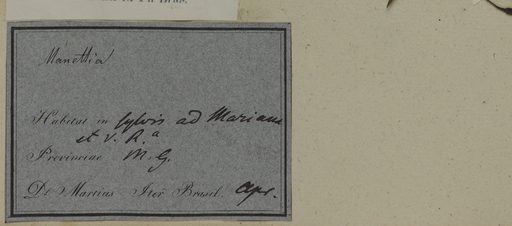 Manettia
Habitat in sylvis ad Mariana
et V. R.a
Provinciae M. G.
Dr Martius Iter Brasil. Apr.